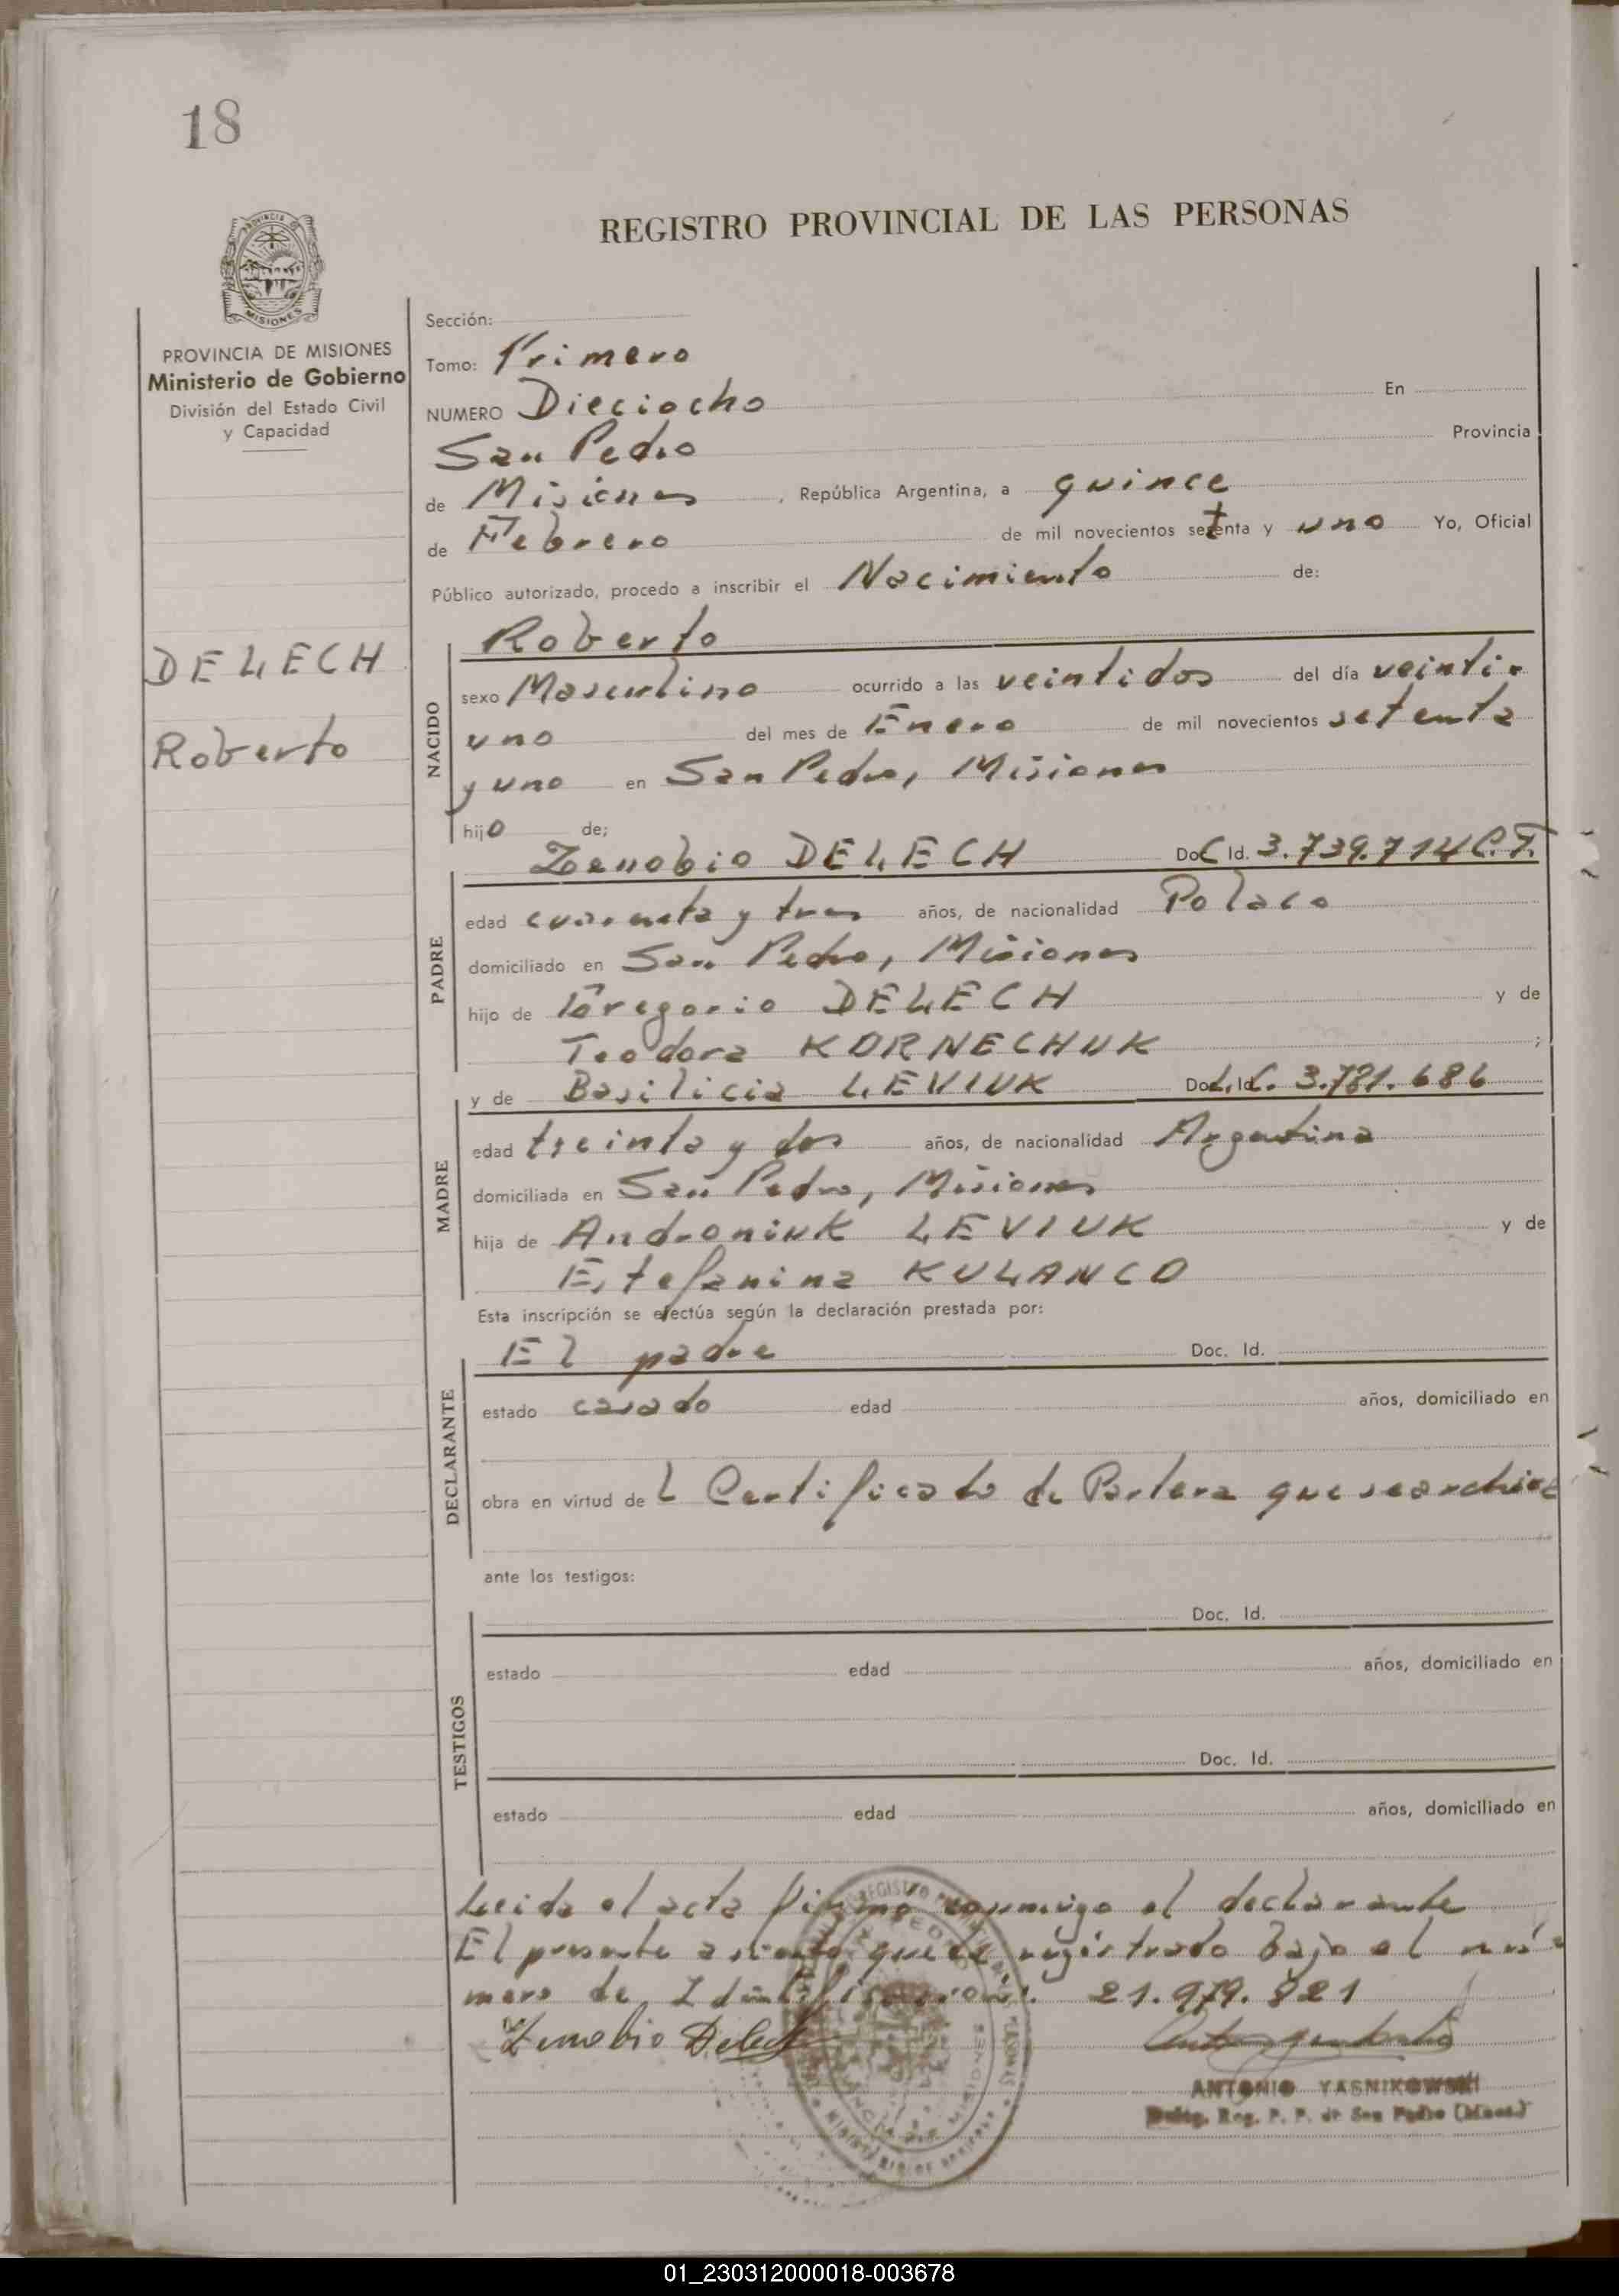 18
REGISTRO PROVINCIAL DE LAS PERSONAS
PROVINCIA DE MISIONES
Ministerio de Gobierno
División del Estado Civil
y Capacidad
DELECH
Roberto
Sección:
Tomo: Primero
NUMERO Dieciocho En
San Pedro Provincia
de Misiones, República Argentina, a quince
de Febrero de mil novecientos setenta y uno Yo, Oficial
Público autorizado, procedo a inscribir el Nacimiento de:
Roberto
NACIDO
sexo Masculino ocurrido a las veintidos del día veinti-
uno del mes de Enero de mil novecientos setenta
y uno en San Pedro, Misiones
hijo de;
Zenobio DELECH Doc Id. 3.739.714 C.F.
PADRE
edad cuarenta y tres años, de nacionalidad Polaco
domiciliado en San Pedro, Misiones
hijo de Gregorio DELECH y de
Teodora KORNECHUK ;
y de Basilicia LEVIUK Doc. Id. L.C. 3.781.686
MADRE
edad treinta y dos años, de nacionalidad Argentina
domiciliada en San Pedro, Misiones
hija de Androniuk LEVIUK y de
Estefanina KULANCO
Esta inscripción se efectúa según la declaración prestada por:
El padre Doc. Id.
DECLARANTE
estado casado edad años, domiciliado en
obra en virtud de l Certificado de Partera que se archiva
ante los testigos:
Doc. Id.
TESTIGOS
estado edad años, domiciliado en
Doc. Id.
estado edad años, domiciliado en
Leida el acta firma conmigo el declarante
El presente asiento queda registrado bajo el nú-
mero de Identificación: 21.979.821
Zenobio Delech
ANTONIO YASNIKOWSKI
Reg. P. P. de San Pedro (Mnes.)
01_230312000018-003678